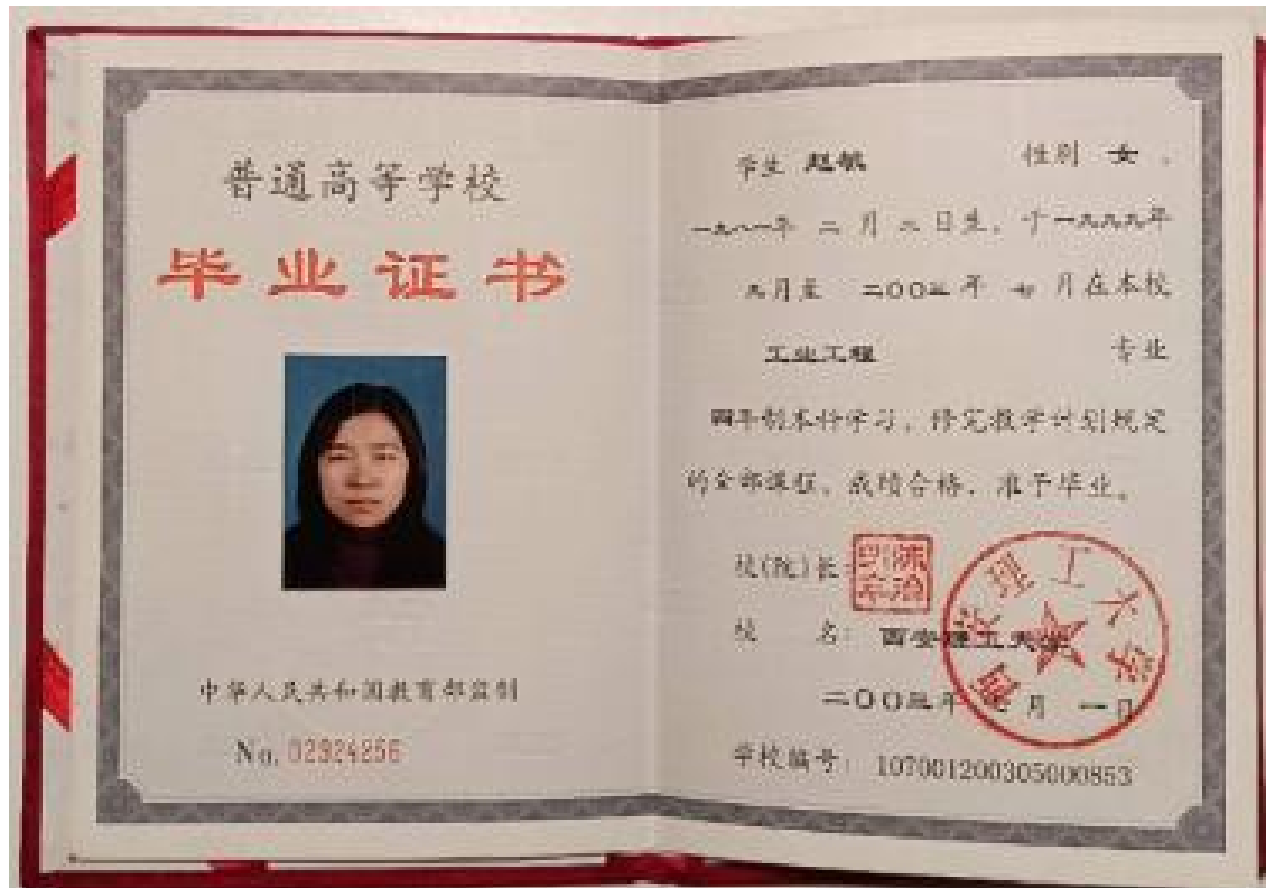 普通高等学校
毕业证书
中华人民共和国教育部监制
No. 02924256
学生 赵敏 性别 女 ,
一九八一年 二 月 二 日生, 于一九九九年
九月至 二〇〇三 年 七 月在本校
工业工程 专业
四年制本科学习, 修完教学计划规定
的全部课程, 成绩合格, 准予毕业。
校(院)长:
校 名: 西安理工大学
二〇〇三年 月 一日
学校编号: 107001200305000853
西安理工大学